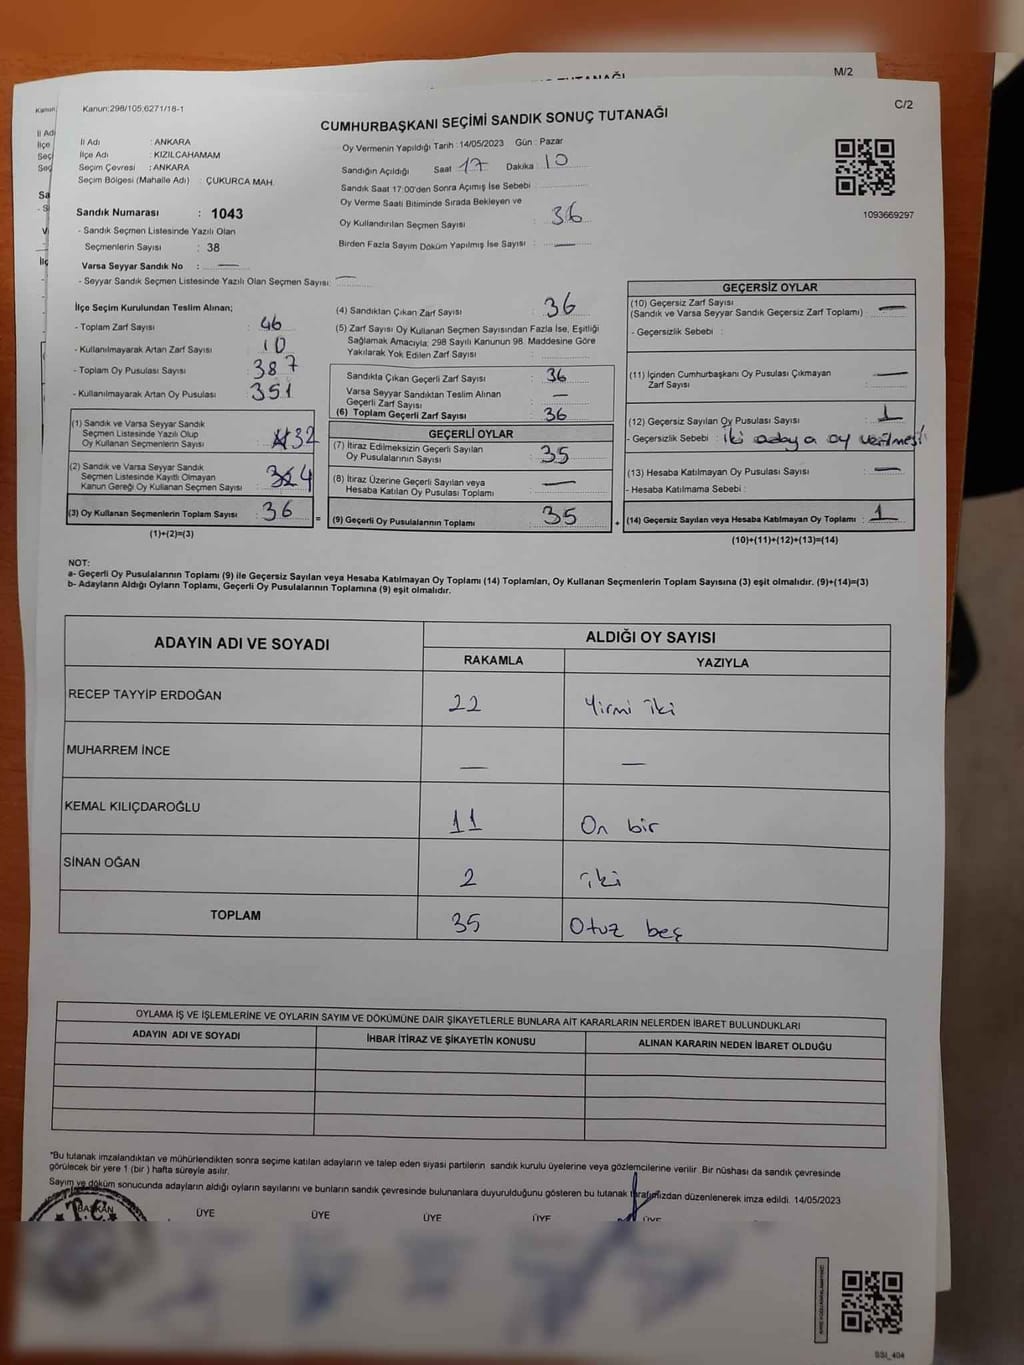 TUTANAĞI
M/2
Kanun:298/105,6271/18-1
C/2
CUMHURBAŞKANI SEÇİMİ SANDIK SONUÇ TUTANAĞI
İl Adı : ANKARA
İlçe Adı : KIZILCAHAMAM
Seçim Çevresi : ANKARA
Seçim Bölgesi (Mahalle Adı) : ÇUKURCA MAH.
Sandık Numarası : 1043
- Sandık Seçmen Listesinde Yazılı Olan
Seçmenlerin Sayısı : 38
Varsa Seyyar Sandık No : —
- Seyyar Sandık Seçmen Listesinde Yazılı Olan Seçmen Sayısı: —
Oy Vermenin Yapıldığı Tarih : 14/05/2023 Gün : Pazar
Sandığın Açıldığı Saat 17 Dakika 10
Sandık Saat 17:00'den Sonra Açımış İse Sebebi :
Oy Verme Saati Bitiminde Sırada Bekleyen ve
Oy Kullandırılan Seçmen Sayısı : 36
Birden Fazla Sayım Döküm Yapılmış İse Sayısı : —
1093669297
İlçe Seçim Kurulundan Teslim Alınan;
- Toplam Zarf Sayısı : 46
- Kullanılmayarak Artan Zarf Sayısı : 10
- Toplam Oy Pusulası Sayısı : 387
- Kullanılmayarak Artan Oy Pusulası : 351
(1) Sandık ve Varsa Seyyar Sandık
Seçmen Listesinde Yazılı Olup
Oy Kullanan Seçmenlerin Sayısı : 32
(2) Sandık ve Varsa Seyyar Sandık
Seçmen Listesinde Kayıtlı Olmayan
Kanun Gereği Oy Kullanan Seçmen Sayısı : 4
(3) Oy Kullanan Seçmenlerin Toplam Sayısı : 36
(1)+(2)=(3)
(4) Sandıktan Çıkan Zarf Sayısı : 36
(5) Zarf Sayısı Oy Kullanan Seçmen Sayısından Fazla İse, Eşitliği
Sağlamak Amacıyla; 298 Sayılı Kanunun 98. Maddesine Göre
Yakılarak Yok Edilen Zarf Sayısı :
Sandıkta Çıkan Geçerli Zarf Sayısı : 36
Varsa Seyyar Sandıktan Teslim Alınan
Geçerli Zarf Sayısı : —
(6) Toplam Geçerli Zarf Sayısı : 36
GEÇERLİ OYLAR
(7) İtiraz Edilmeksizin Geçerli Sayılan
Oy Pusulalarının Sayısı : 35
(8) İtiraz Üzerine Geçerli Sayılan veya
Hesaba Katılan Oy Pusulası Toplamı : —
= (9) Geçerli Oy Pusulalarının Toplamı : 35
GEÇERSİZ OYLAR
(10) Geçersiz Zarf Sayısı
(Sandık ve Varsa Seyyar Sandık Geçersiz Zarf Toplamı) : —
- Geçersizlik Sebebi :
(11) İçinden Cumhurbaşkanı Oy Pusulası Çıkmayan
Zarf Sayısı : —
(12) Geçersiz Sayılan Oy Pusulası Sayısı : 1
- Geçersizlik Sebebi : İki adaya oy verilmesi
(13) Hesaba Katılmayan Oy Pusulası Sayısı : —
- Hesaba Katılmama Sebebi :
+ (14) Geçersiz Sayılan veya Hesaba Katılmayan Oy Toplamı : 1
(10)+(11)+(12)+(13)=(14)
NOT:
a- Geçerli Oy Pusulalarının Toplamı (9) ile Geçersiz Sayılan veya Hesaba Katılmayan Oy Toplamı (14) Toplamları, Oy Kullanan Seçmenlerin Toplam Sayısına (3) eşit olmalıdır. (9)+(14)=(3)
b- Adayların Aldığı Oyların Toplamı, Geçerli Oy Pusulalarının Toplamına (9) eşit olmalıdır.
ADAYIN ADI VE SOYADI ALDIĞI OY SAYISI
RAKAMLA YAZIYLA
RECEP TAYYİP ERDOĞAN 22 Yirmi iki
MUHARREM İNCE — —
KEMAL KILIÇDAROĞLU 11 On bir
SİNAN OĞAN 2 iki
TOPLAM 35 Otuz beş
OYLAMA İŞ VE İŞLEMLERİNE VE OYLARIN SAYIM VE DÖKÜMÜNE DAİR ŞİKAYETLERLE BUNLARA AİT KARARLARIN NELERDEN İBARET BULUNDUKLARI
ADAYIN ADI VE SOYADI İHBAR İTİRAZ VE ŞİKAYETİN KONUSU ALINAN KARARIN NEDEN İBARET OLDUĞU
*Bu tutanak imzalandıktan ve mühürlendikten sonra seçime katılan adayların ve talep eden siyasi partilerin sandık kurulu üyelerine veya gözlemcilerine verilir. Bir nüshası da sandık çevresinde
görülecek bir yere 1 (bir ) hafta süreyle asılır.
Sayım ve döküm sonucunda adayların aldığı oyların sayılarını ve bunların sandık çevresinde bulunanlara duyurulduğunu gösteren bu tutanak tarafımızdan düzenlenerek imza edildi. 14/05/2023
BAŞKAN ÜYE ÜYE ÜYE ÜYE ÜYE
T.C.
SSI_404